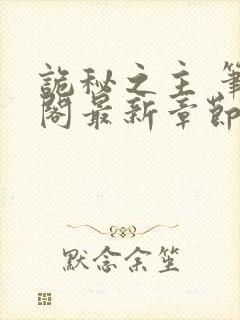 詭秘之主 筆
閣最新章節
默念余笙